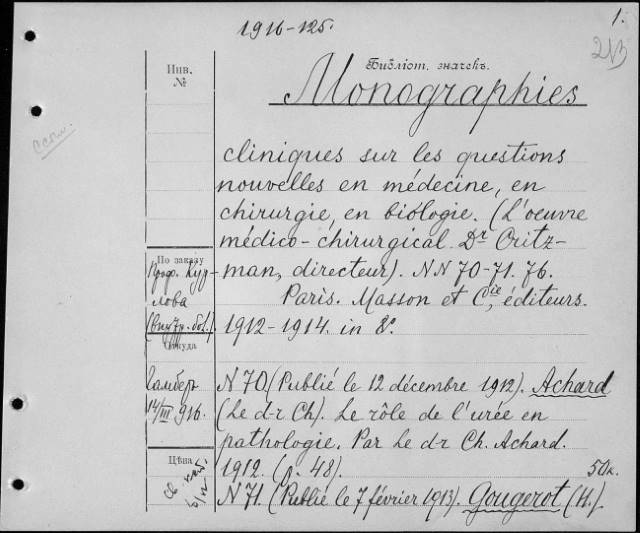 1916-125.
1.
213
Инв.
№
Библіот. значекъ.
Monographies
cliniques sur les questions
nouvelles en médecine, en
chirurgie, en biologie. (L'oeuvre
médico-chirurgical. Dr Critz-
man, directeur). NN 70-71. 76.
Paris. Masson et Cie, éditeurs.
1912-1914. in 8°.
По заказу
Проф. Кур-
лова
(внутр. бол.).
Откуда
14/III 916.
Цѣна
N 70 (Publié le 12 décembre 1912). Achard
(Le d-r Ch). Le rôle de l'urée en
pathologie. Par Le d-r Ch. Achard.
1912. (p. 48). 50к.
N 71. (Publié le 7 février 1913). Gougerot (H.).